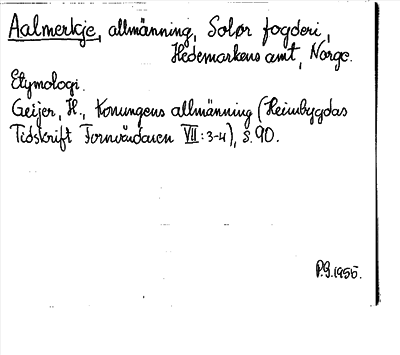 Aalmerkje, allmänning, Solør fogderi,
Hedemarkens amt, Norge.
Etymologi.
Geijer, H., Konungens allmänning (Heimbygdas
Tidskrift Fornvårdaren VII:3-4), s.90.
P.G.1955.